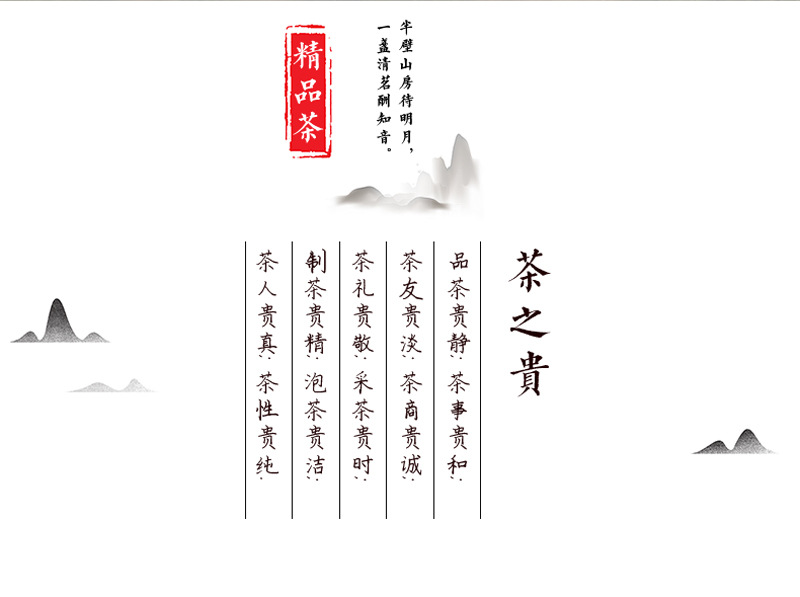 半壁山房待明月，
一盏清茗酬知音。
精品茶
茶之貴
品茶贵静；茶事贵和；
茶友贵淡；茶商贵诚；
茶礼贵敬；采茶贵时；
制茶贵精；泡茶贵洁；
茶人贵真；茶性贵纯；